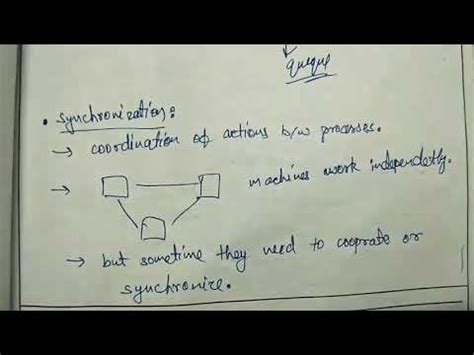 queque
• Synchronization:
→ coordination of actions b/w processes.
→ machines work independetly.
→ but sometime they need to cooprate or
synchronize.